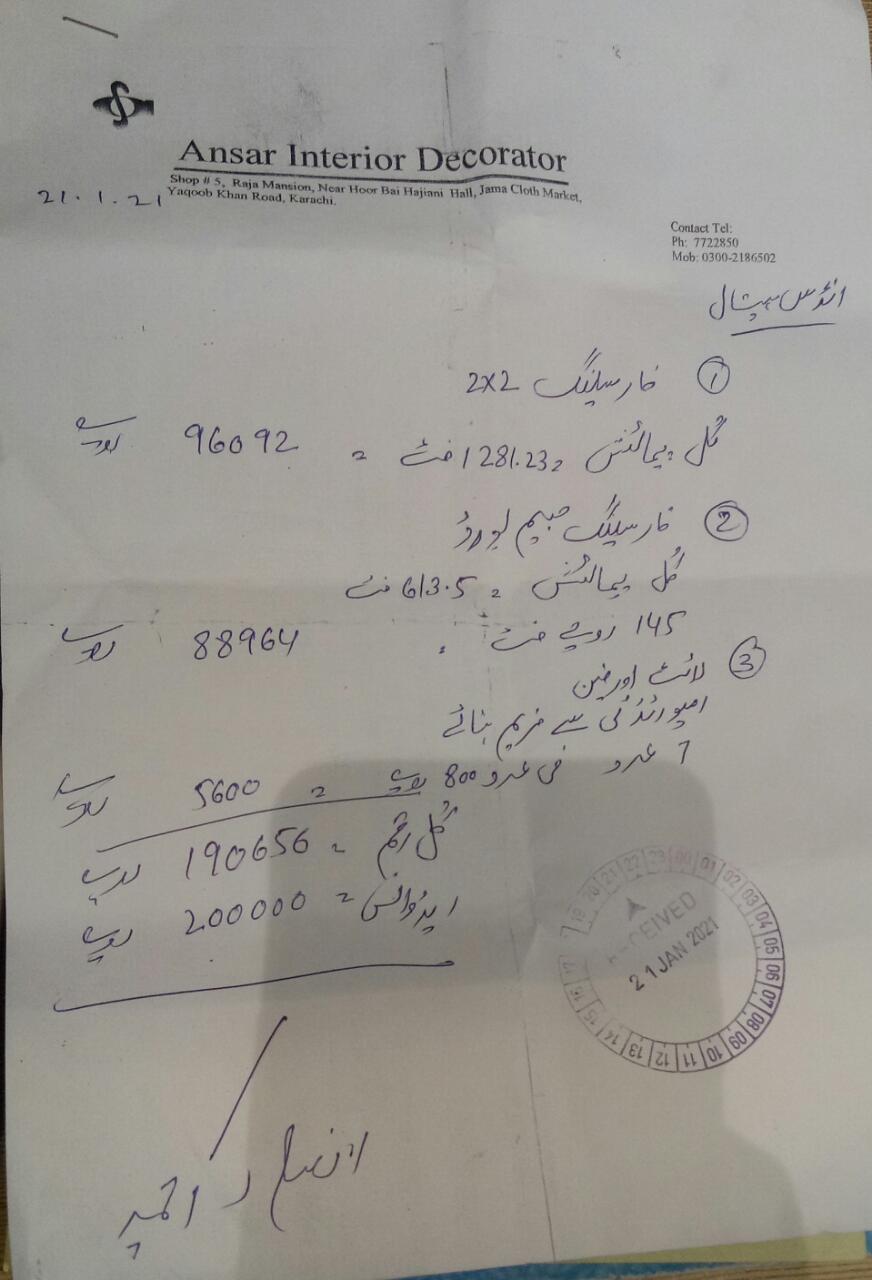 Ansar Interior Decorator
Shop # 5, Raja Mansion, Near Hoor Bai Hajiani Hall, Jama Cloth Market,
Yaqoob Khan Road, Karachi.
21.1.21
Contact Tel:
Ph: 7722850
Mob: 0300-2186502
انڈس ہسپتال
① فار سلینگ 2x2
کُل پیمائش = 1281.23 فٹ = 96092 روپے
② فار سلینگ جپسم بورڈ
کُل پیمائش = 613.5 فٹ
145 روپے فٹ = 88964 روپے
③ لائٹ اور فین
سے فریم بنائے
7 عدد فی عدد 800 روپے = 5600 روپے
کُل رقم = 190656 روپے
ایڈوانس = 200000 روپے
RECEIVED
21 JAN 2021
00 01 02 03 04 05 06 07 08 09 10 11 12 13 14 15 16 17 18 19 20 21 22 23
انصار احمد